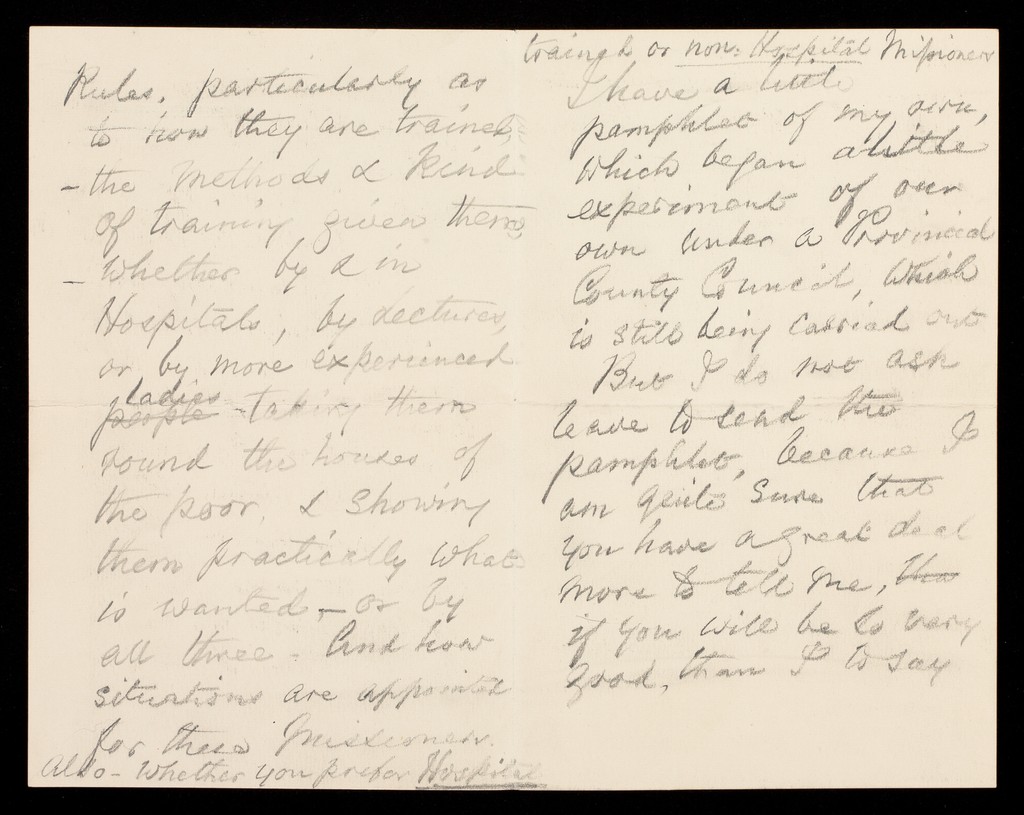 Rules, particularly as
to how they are trained,
- the Methods & Kind
of training given them,
- whether by & in
Hospitals, by Lectures,
or by more experienced
ladies
people - taking them
round the houses of
the poor, & showing
them practically what
is wanted, - or by
all three - And how
situations are appointed
for these Missioners.
Also - whether you prefer Hospital
trained or non-Hospital Missioners
I have a little
pamphlet of my own,
which began a little
experiment of our
own under a Provincial
County Council, which
is still being carried out
But I do not ask
leave to send the
pamphlet, because I
am quite sure that
you have a great deal
more to tell me, tha
if you will be so very
good, than I to say